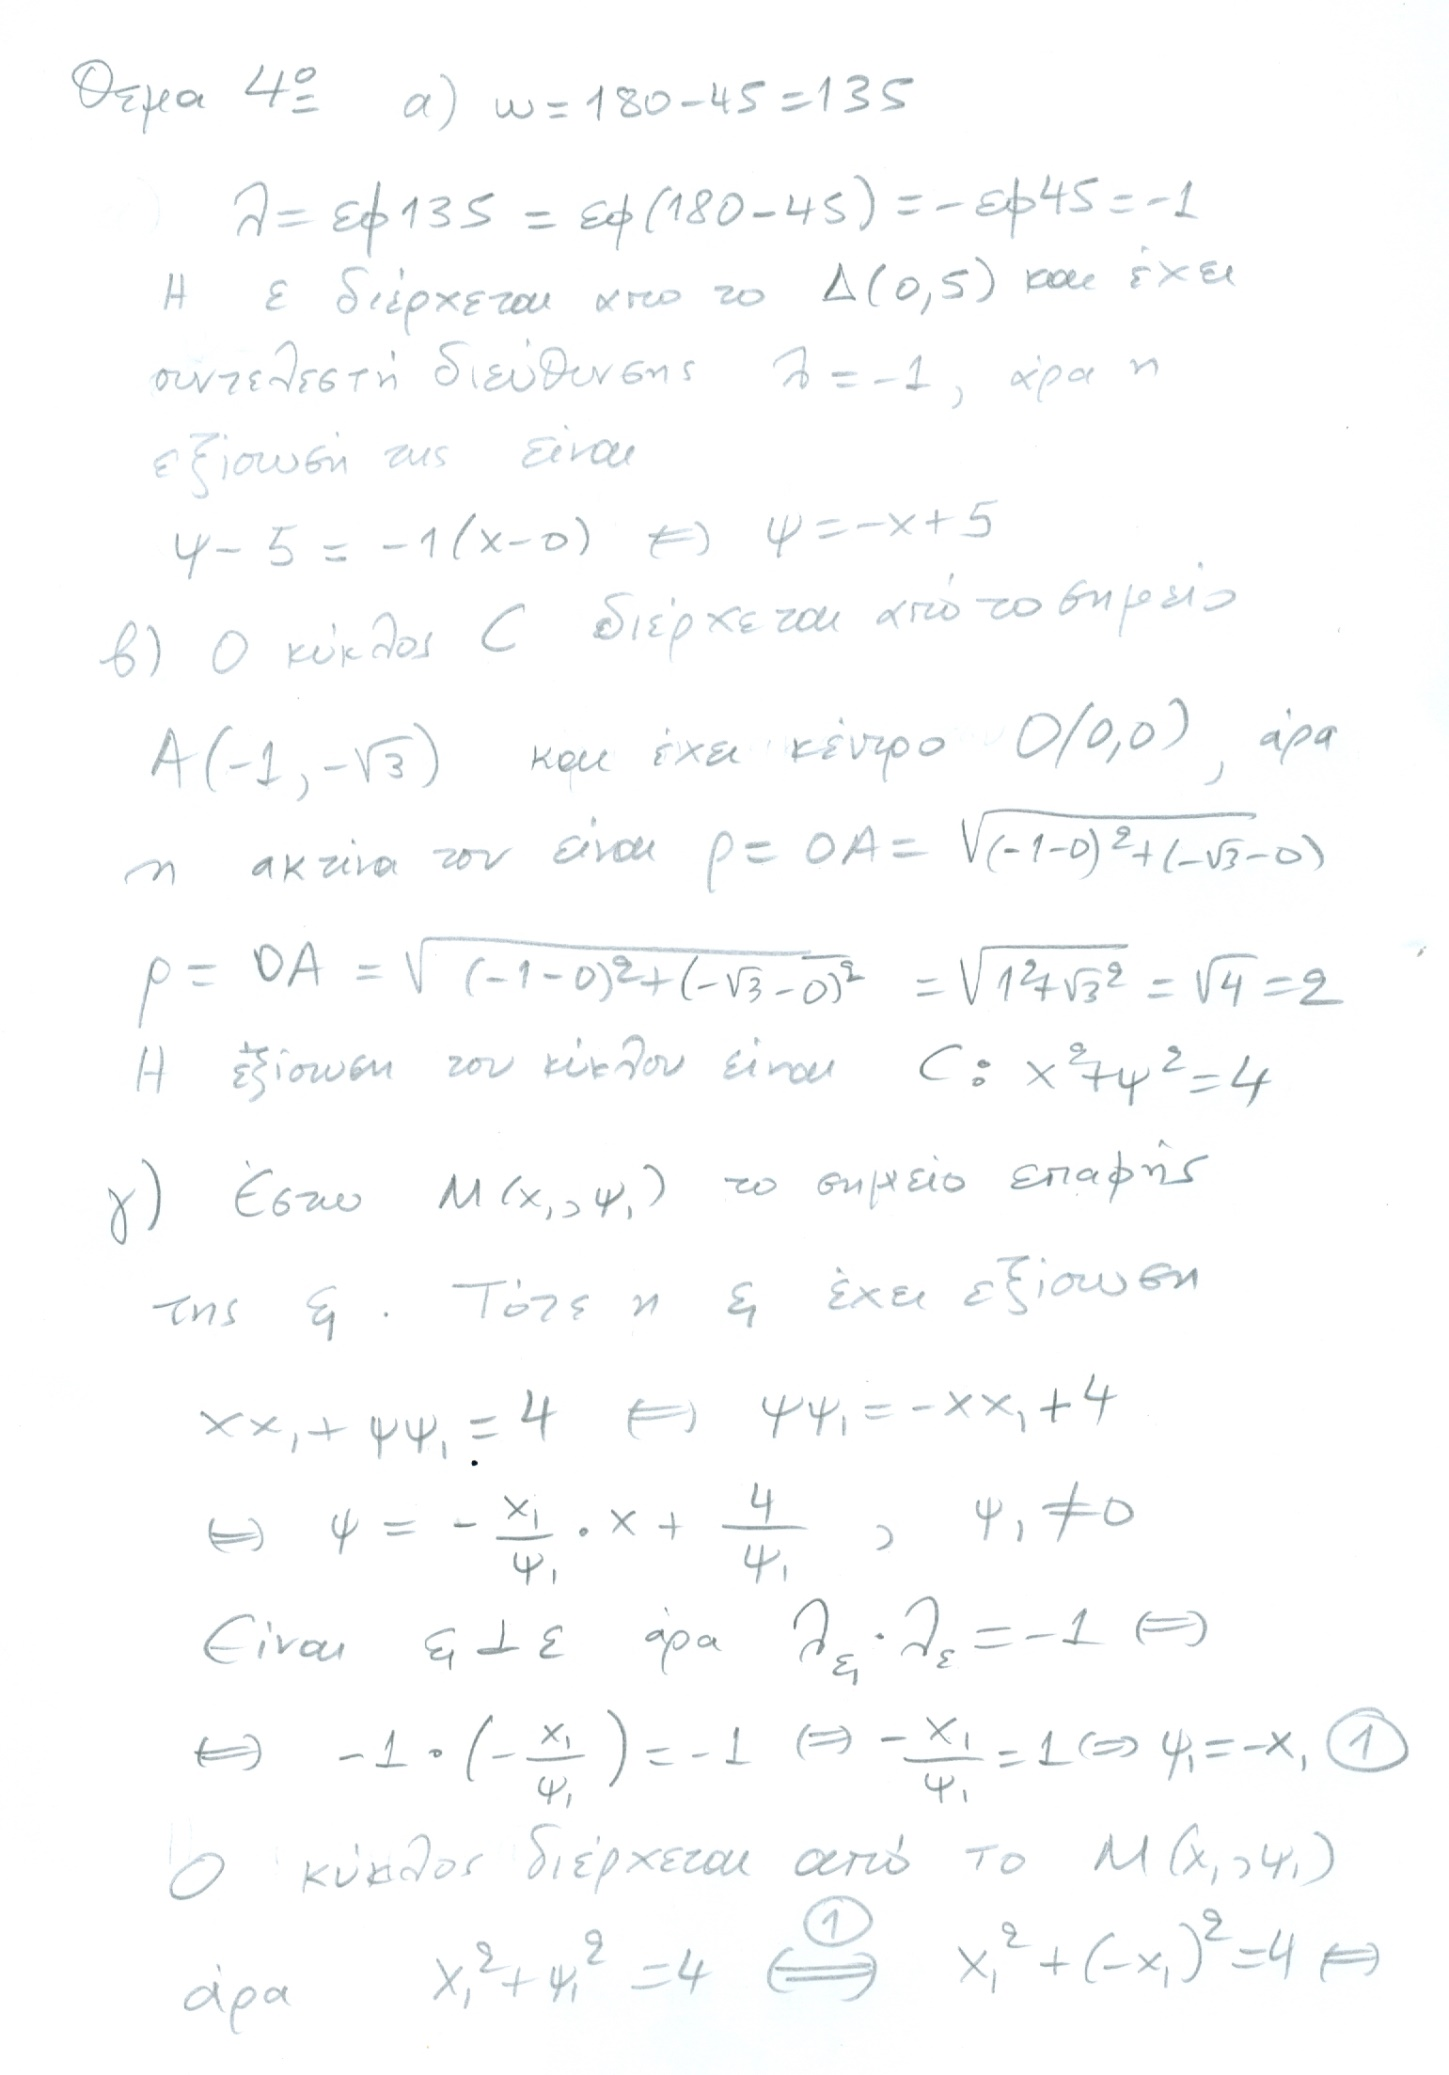 Θεμα 4º α) ω=180-45=135
λ=εφ135=εφ(180-45)=-εφ45=-1
Η ε διέρχεται απο το Δ(0,5) και έχει
συντελεστή διεύθυνσης λ=-1, άρα η
εξίσωσή της είναι
ψ-5=-1(x-0) ⇔ ψ=-x+5
β) Ο κύκλος C διέρχεται από το σημείο
A(-1,-√3) και έχει κέντρο O(0,0), άρα
η ακτίνα του είναι ρ=OA=√(-1-0)²+(-√3-0)
ρ=OA=√(-1-0)²+(-√3-0)² =√1²+√3² =√4=2
Η εξίσωση του κύκλου είναι C: x²+ψ²=4
γ) Έστω M(x₁,ψ₁) το σημείο επαφής
της ε₁. Τότε η ε₁ έχει εξίσωση
xx₁+ψψ₁=4 ⇔ ψψ₁=-xx₁+4
⇔ ψ=-x₁/ψ₁·x+4/ψ₁, ψ₁≠0
Είναι ε₁⊥ε άρα λε₁·λε=-1 ⇔
⇔ -1·(-x₁/ψ₁)=-1 ⇔ -x₁/ψ₁=1 ⇔ ψ₁=-x₁ ①
Ο κύκλος διέρχεται από το M(x₁,ψ₁)
άρα x₁²+ψ₁²=4 ⇔① x₁²+(-x₁)²=4 ⇔